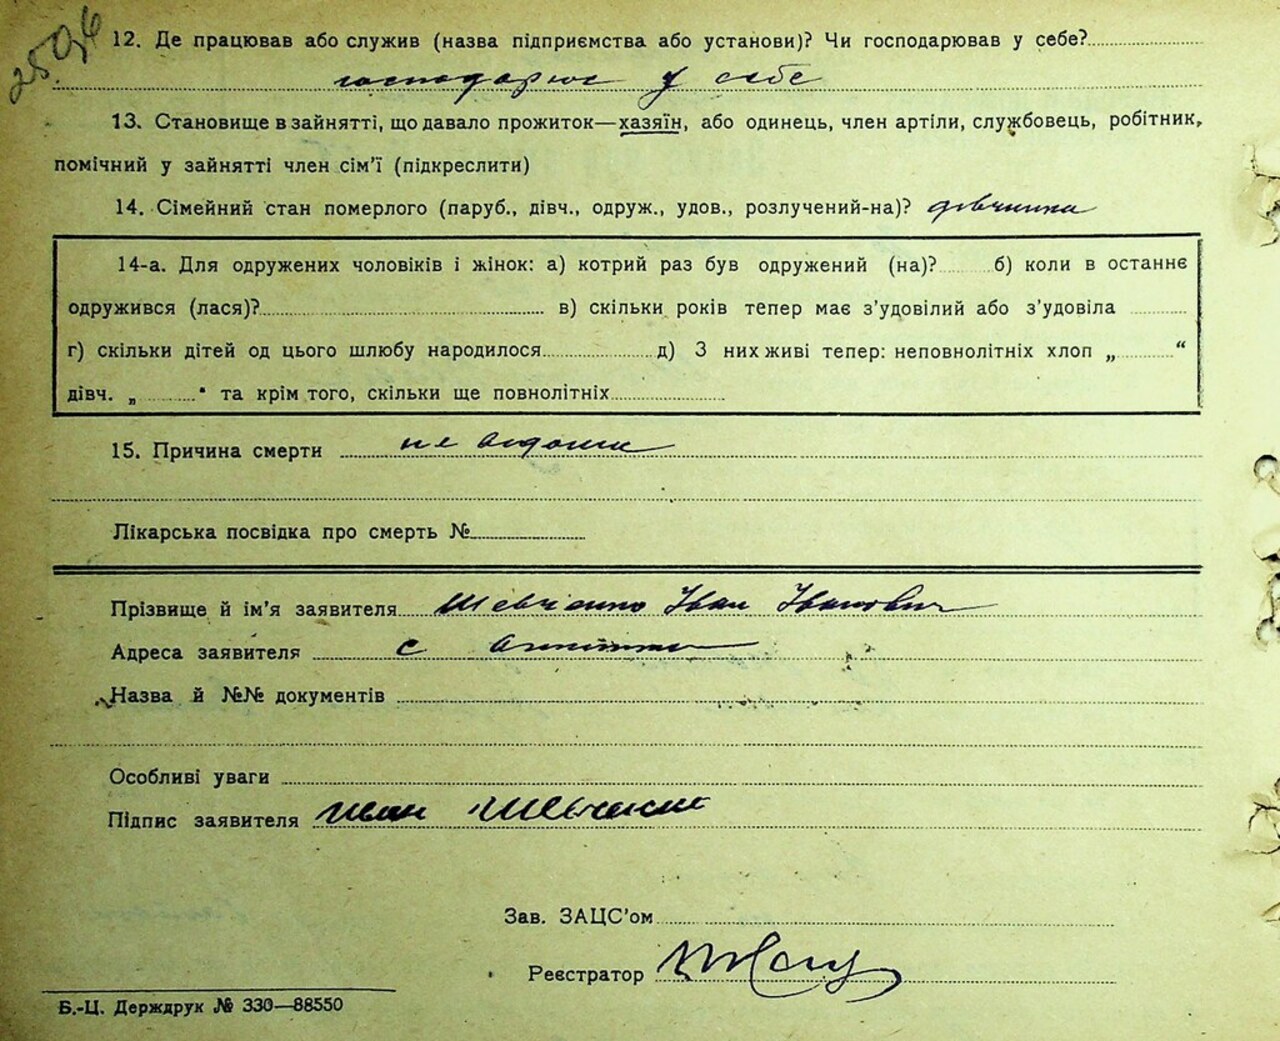 12. Де працював або служив (назва підприємства або установи)? Чи господарював у себе?
господарює у себе
13. Становище в зайнятті, що давало прожиток—хазяїн, або одинець, член артіли, службовець, робітник,
помічний у зайнятті член сім’ї (підкреслити)
14. Сімейний стан померлого (паруб., дівч., одруж., удов., розлучений-на)? дівчинка
14-а. Для одружених чоловіків і жінок: а) котрий раз був одружений (на)? б) коли в останнє
одружився (лася)? в) скільки років тепер має з’удовілий або з’удовіла
г) скільки дітей од цього шлюбу народилося д) З них живі тепер: неповнолітніх хлоп „ “
дівч. „ “ та крім того, скільки ще повнолітніх
15. Причина смерти не
Лікарська посвідка про смерть №
Прізвище й ім’я заявителя Шевченко Іван Іванович
Адреса заявителя с
Назва й №№ документів
Особливі уваги
Підпис заявителя Иван Шевченко
Зав. ЗАЦС’ом
Реєстратор
Б.-Ц. Держдрук № 330—88550